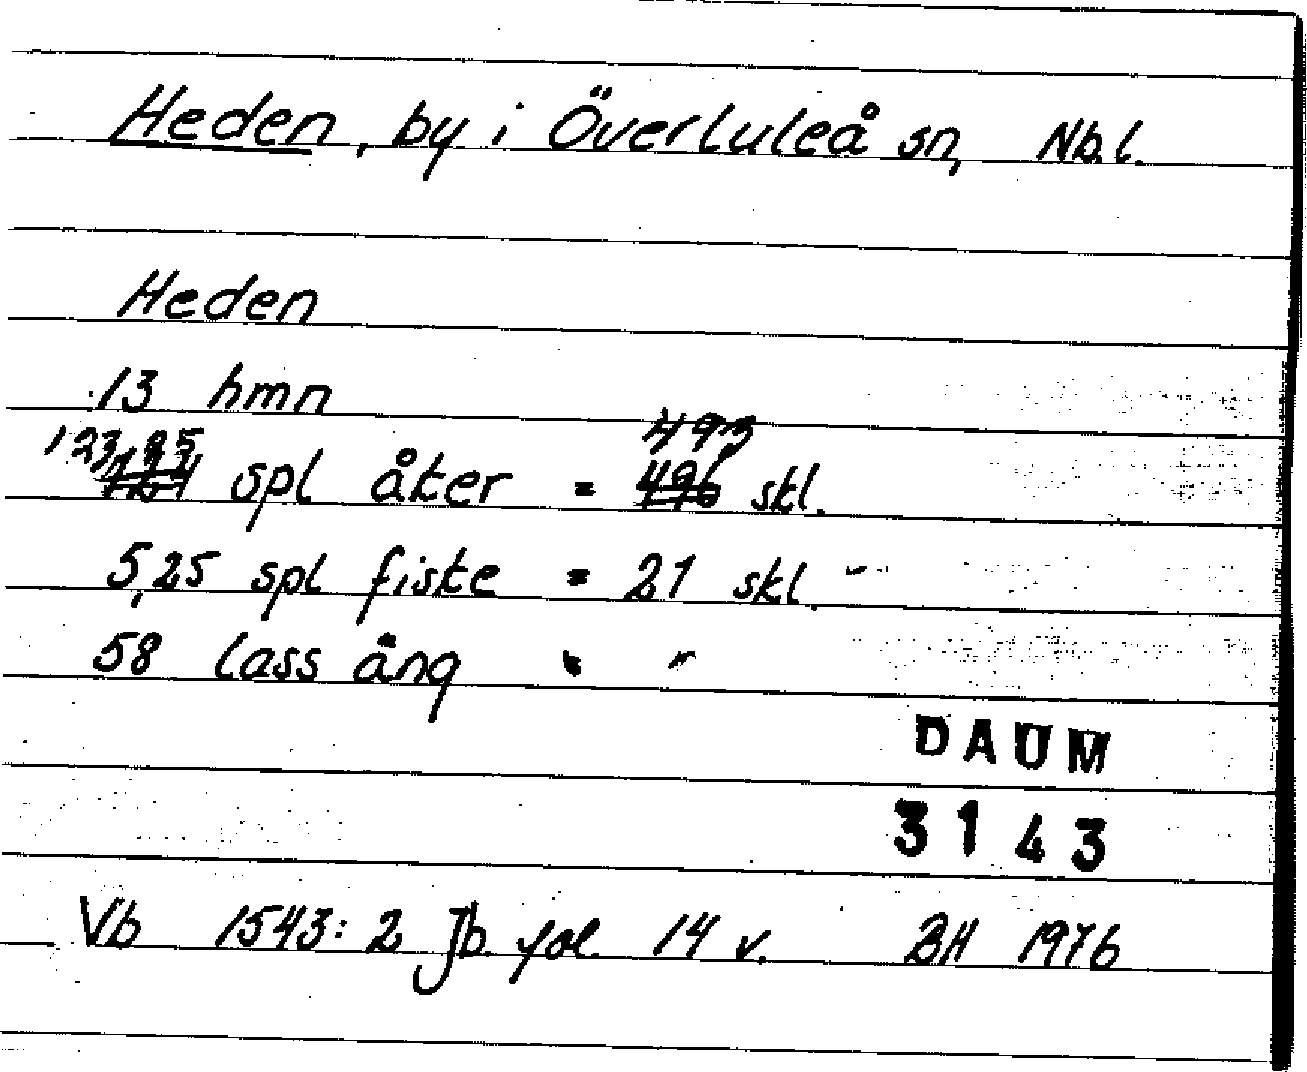 Heden, by i Överluleå sn, Nb.l.
Heden
13 hmn
123,25 spl åker = 493 skl.
5,25 spl fiske = 21 skl. -
58 lass äng " "
DAUM
3143
Vb 1543:2 Jb. fol. 14 v. BH 1976